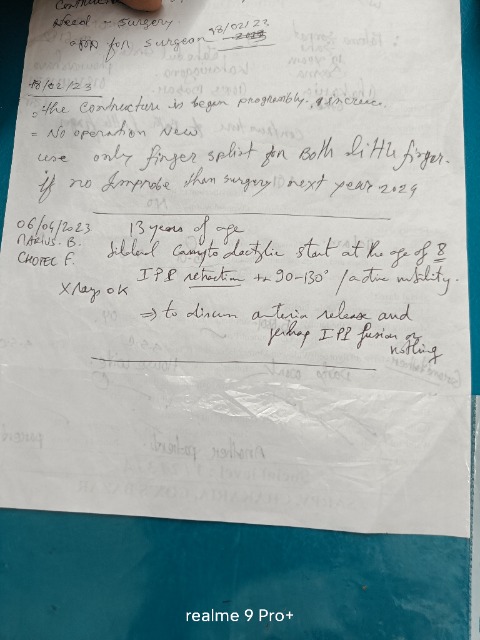 Need surgery
app for surgeon 18/02/23
18/02/23
= the contracture is begun progressbly, increase.
= No operation New
use only finger splint for Both little finger.
if no Improbe than surgery next year 2024
06/04/2023 13 years of age
MARIUS. B. bilateral Camptodactylie start at the age of 8
CHOTEC F. IPP rétraction ++ 90-130° / active mobility.
Xrays OK
⇒ to discuss anterior release and
perhap IPP fusion or
nothing
realme 9 Pro+